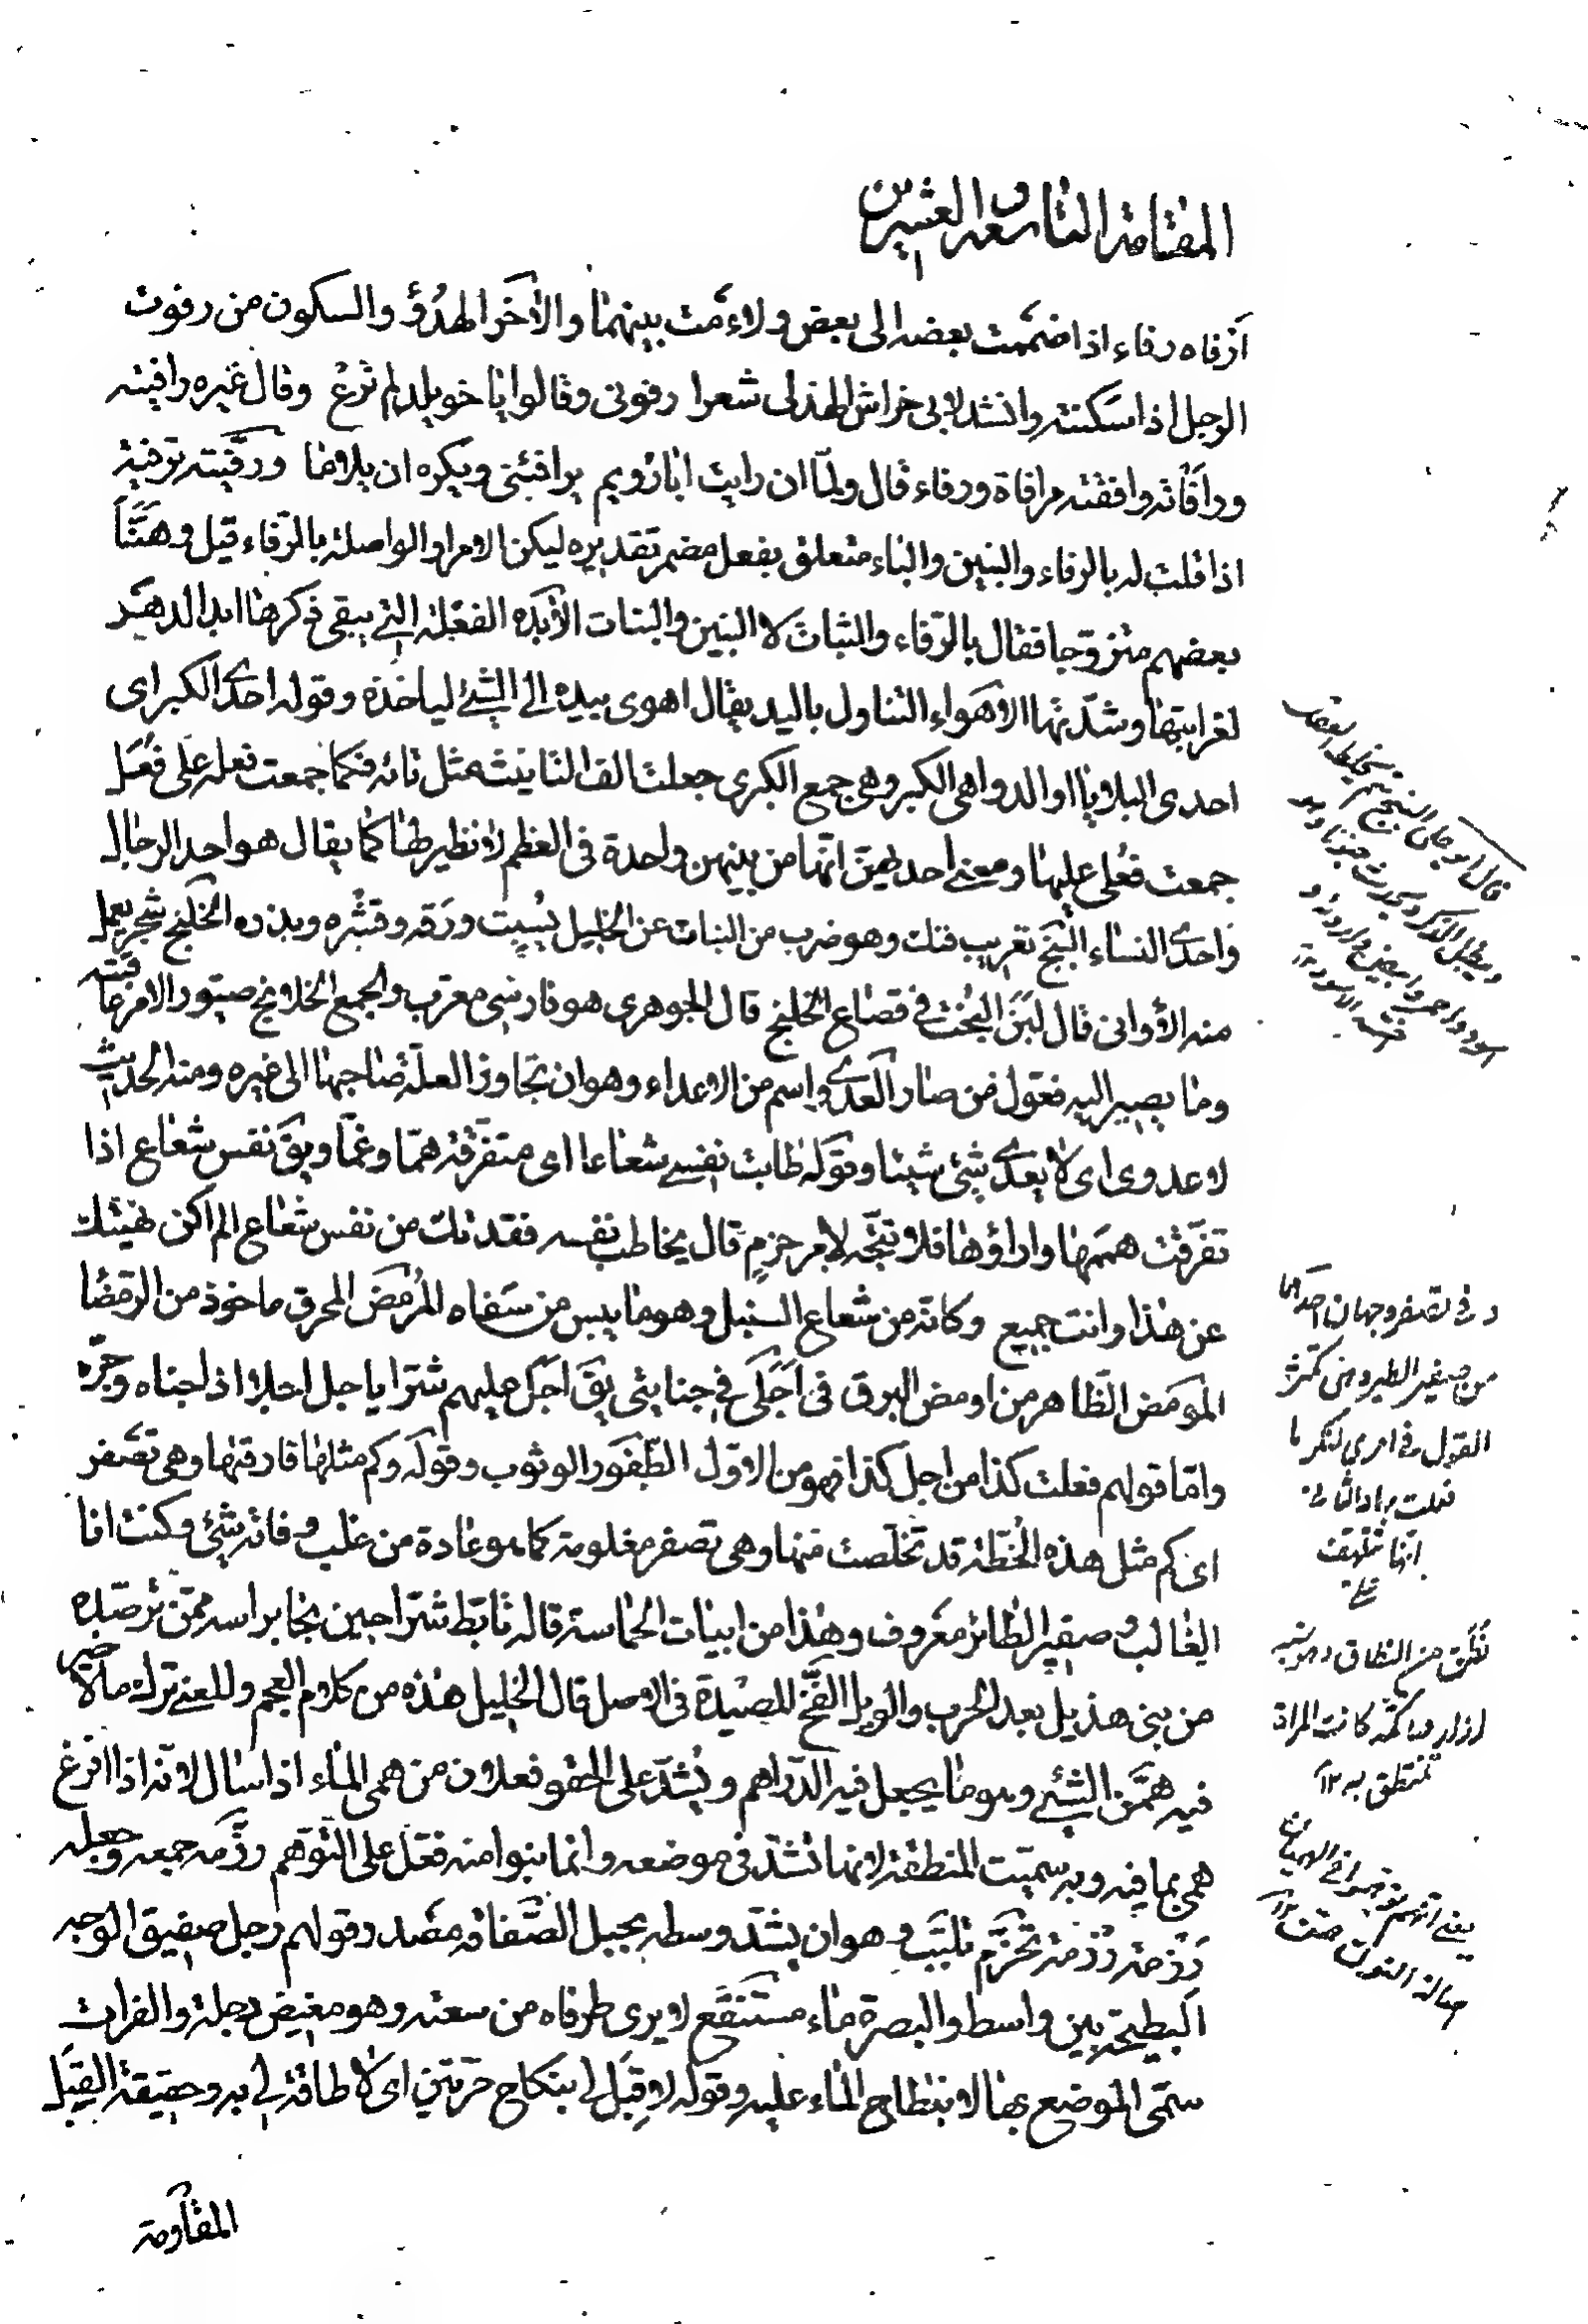 المقامة التاسعة والعشرين
ارفاه رفاء اذا ضممت بعضه الى بعض ولاءمت بينهما والاخر الهدُؤ والسكون من رفوت
الرجل اذا سكنته وانشد لابى خراش الهذلى شعرا رفونى وقالوا يا خويلد لم ترع وقال غيره رافيته
ورافاته وافقته مرافاة ورفاء قال ولما ان رايت ابا رويم يرافئنى ويكره ان يلاما ورفيته ترفية
اذا قلت له بالرفاء والبنين والباء متعلق بفعل مضمر تقديره ليكن الامر او الواصلة بالرفاء قيل وهنّأ
بعضهم متزوجا فقال بالرفاء والثبات لا البنين والبنات الابده الفعلة التي يبقى ذكرها ابد الدهر
لغرابتها وشدتها الاهواء التناول باليد يقال اهوى بيده الى الشئ لياخذه وقوله احدى الكبر اى
احدى البلايا او الدواهى الكبر وهى جمع الكبرى جعلت الف التانيث مثل تائه فكما جمعت فعله على فُعَل
جمعت فعلى عليها ومعنى احديهن انها من بينهن واحدة فى العظم لا نظير لها كما يقال هو احد الرجال
واحدى النساء البنج تعريب فنك وهو ضرب من النبات عن الخليل يسبت ورقه وقشره وبذره الخلنج شجر يعمل
منه الاوانى قال لبن البخت فى قصاع الخلنج قال الجوهرى هو فارسى معرب والجمع الخلانج صيور الامر عاقبته
وما يصير اليه فعول من صار العدى اسم من الاعداء وهو ان تجاوز العلة صاحبها الى غيره ومنه الحديث
لا عدوى اى لا يعدى شئ شيئا وقوله طابت نفسى شعاعا اى متفرقة همّا وغمّا ويق نفس شعاع اذا
تفرقت هممها واراؤها فلا تتجه لامر حزم قال يخاطب نفسه فقدتك من نفس شعاع الم اكن نهيتك
عن هذا وانت جميع وكانه من شعاع السنبل وهو ما يبس من سفاه المُرمِض المحرق ماخوذ من الرمضا
المومض الظاهر من اومض البرق فى اجلى فى جنايتى يق اجل عليهم شرا ياجل اجلا اذا جناه وجره
واما قولهم فعلت كذا من اجل كذا فهو من الاول الطفور الوثوب وقوله وكم مثلها فارقتها وهى تصفر
اى كم مثل هذه الخطة قد تخلصت منها وهى تصفر مغلوبة كما هو عادة من غلب وفاته شئ وكنت انا
الغالب وصفير الطائر معروف وهذا من ابيات الحماسة قاله تابط شرا حين نجا براسه ممن ترصده
من بنى هذيل بعد الحرب والويل الفخ للصيدة فى الاصل قال الخليل هذه من كلام العجم والمعنى ترك ما لا خير
فيه هميان الشئ وهو ما يجعل فيه الدراهم ويشد على الحقو فعلان من همى الماء اذا سال لانه اذا افرغ
همى بما فيه وبه سميت المنطقة لانها تشد فى موضعه وانما بنوا منه فعل على التوهم رزّمه جمعه وجعله
رزمة رزمة تحزم تلبب وهو ان يشد وسطه بحبل الصفاقة مصدر قولهم رجل صفيق الوجه
البطيحة بين واسط والبصرة ماء مستنقع لا يرى طرفاه من سعته وهو مغيض دجلة والفرات
سمى الموضع بها لانبطاح الماء عليه وقوله لا قِبَل لى بنكاح حرتين اى لا طاقة لى به وحقيقة القِبَل
المقاومة
ويبطل الذكر
اسود واحمر وابيض
وفى تصفر وجهان احدهما
من صفير الطير
القول فى امرى
فعلت
انها تتلهف
النطاق
ازار كانت المراة
تنتطق به ١٢
يعنى انهم توهموا فى الهميان
اصالة النون